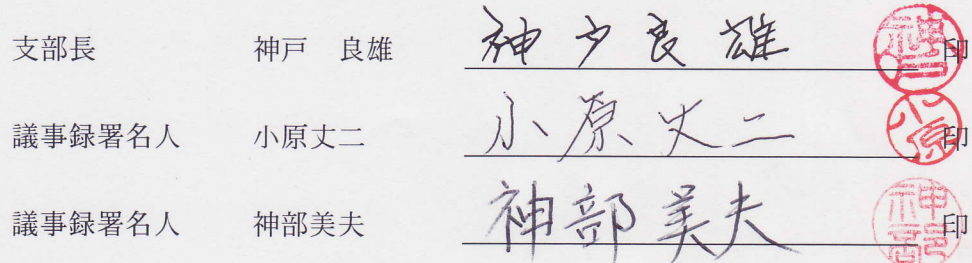 支部長 神戸 良雄 神戸良雄 神戸 印
議事録署名人 小原丈二 小原丈二 小原 印
議事録署名人 神部美夫 神部美夫 神部 印